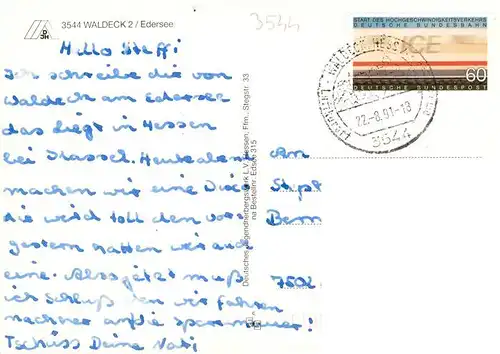 3544 WALDECK 2 / Edersee
3544
Hallo Steffi
Ich schreibe dir von
Waldeck am Edersee
das liegt in Hessen
bei Kassel. Heute abend
machen wir eine Disco
die wird toll den vor-
gestern hatten wir auch
eine. Also jetzt muß
ich schluß den wir fahren
nachher auf die
Tschüss Deine
Deutsches Jugendherbergswerk L.V. Hessen, Ffm., Stegstr. 33
Bestellnr. Edsee 315
START DES HOCHGESCHWINDIGKEITSVERKEHRS
DEUTSCHE BUNDESBAHN
ICE
60
DEUTSCHE BUNDESPOST
WALDECK, HESS
Luftkurort
22.-8.91-13
3544
An
Bern